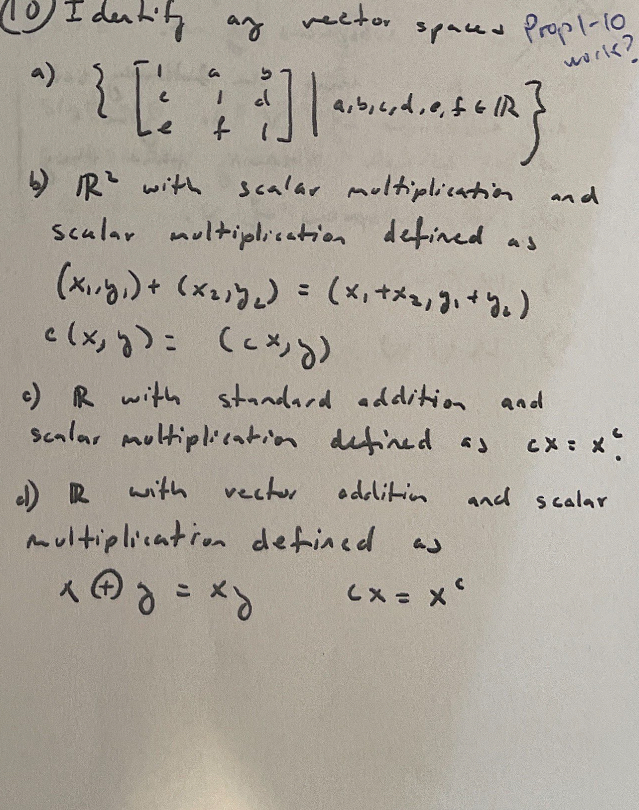 (10) Identify any vector spaces Prop 1-10
work?
a) { [ 1 a b
c 1 d
e f 1 ] | a,b,c,d,e,f ∈ ℝ }
b) ℝ² with scalar multiplication and
scalar multiplication defined as
(x₁,y₁) + (x₂,y₂) = (x₁+x₂, y₁+y₂)
c(x,y) = (cx,y)
c) ℝ with standard addition and
scalar multiplication defined as cx = xᶜ.
d) ℝ with vector addition and scalar
multiplication defined as
x ⊕ y = xy cx = xᶜ